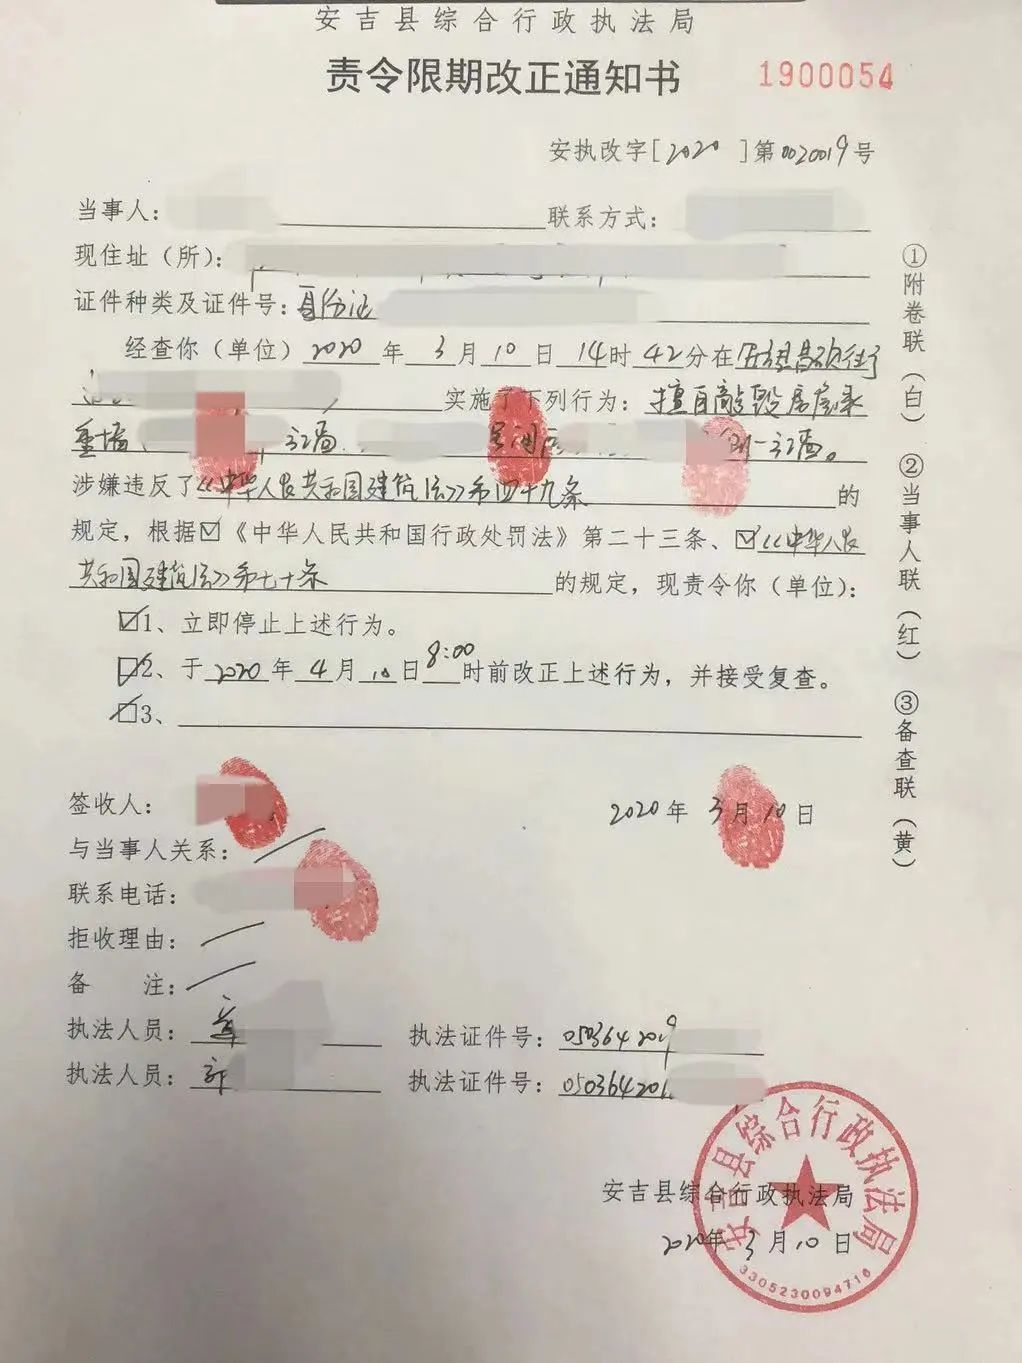 安吉县综合行政执法局
责令限期改正通知书
1900054
安执改字[2020]第0020019号
当事人：
联系方式：
现住址（所）：
证件种类及证件号：身份证
经查你（单位）2020年3月10日14时42分在
实施了下列行为：擅自敲毁房屋承
重墙
涉嫌违反了《中华人民共和国建筑法》第四十九条的
规定，根据☑《中华人民共和国行政处罚法》第二十三条、☑《中华人民
共和国建筑法》第七十条的规定，现责令你（单位）：
☑1、立即停止上述行为。
☑2、于2020年4月10日8:00时前改正上述行为，并接受复查。
3、
签收人：
2020年3月10日
与当事人关系：
联系电话：
拒收理由：
备 注：
执法人员：
执法证件号：050364209
执法人员：
执法证件号：050364201
安吉县综合行政执法局
2020年3月10日
安吉县综合行政执法局
3305230094716
①附卷联（白）②当事人联（红）③备查联（黄）